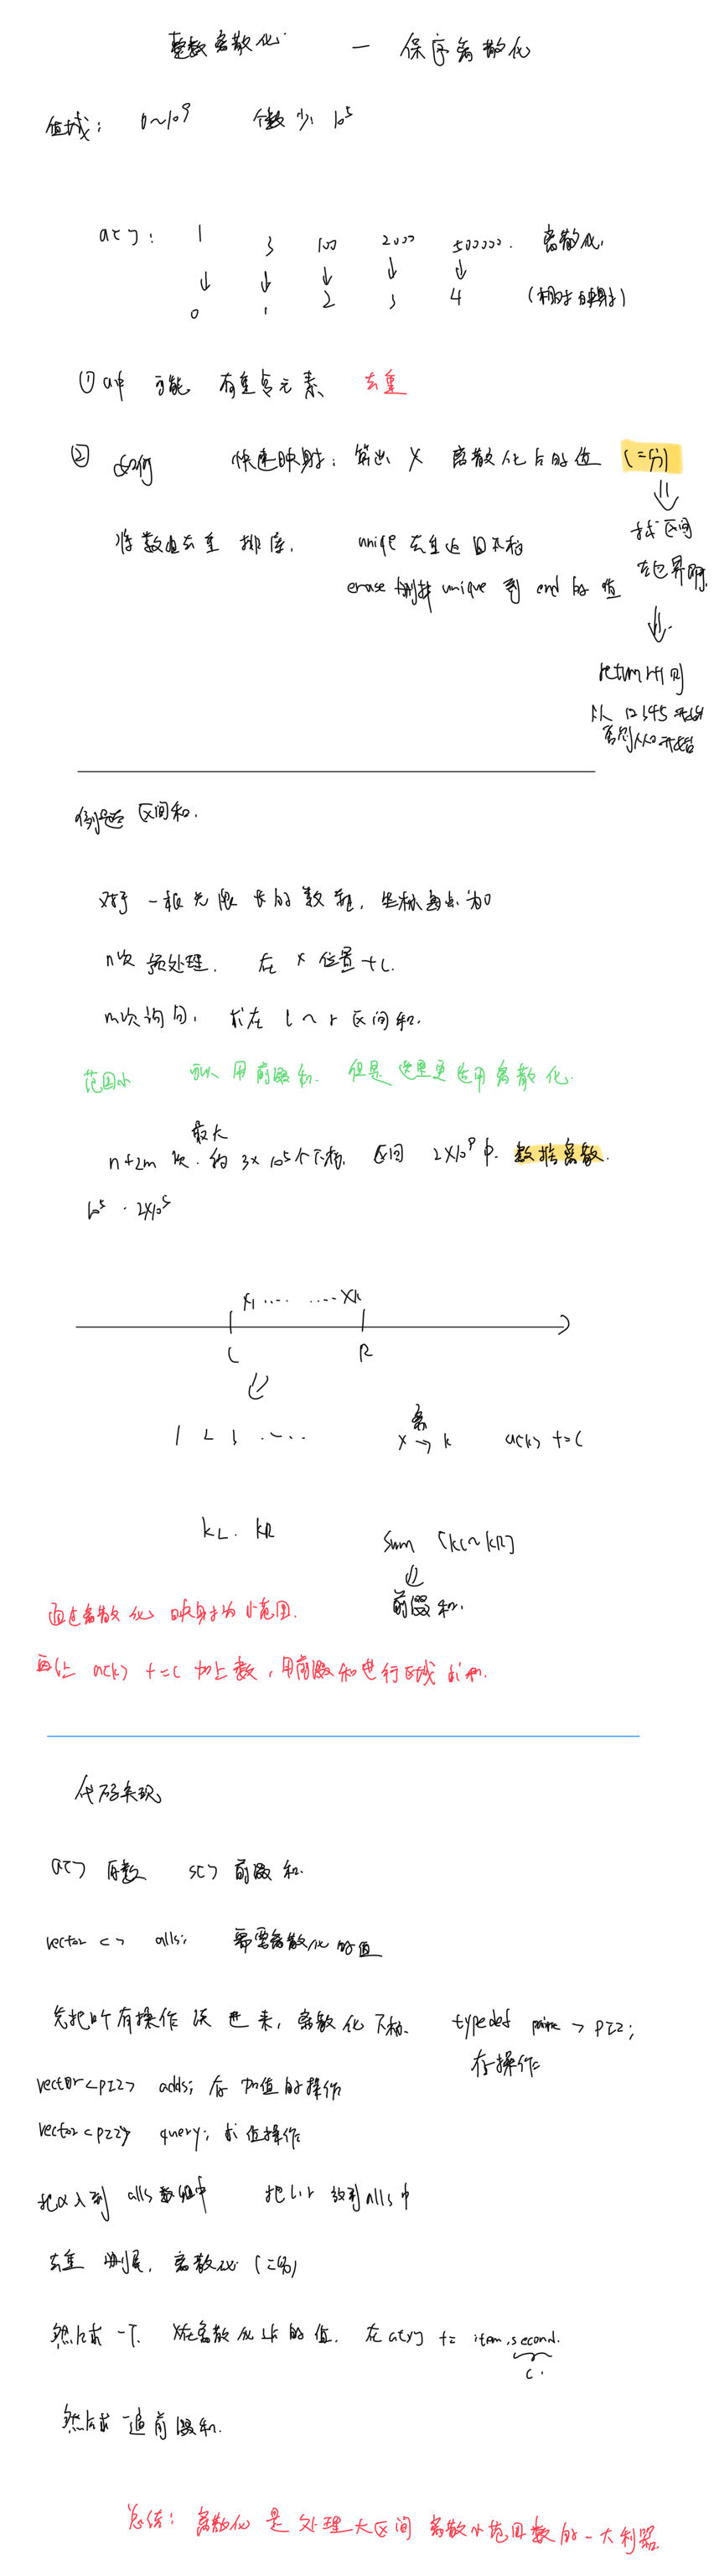 整数离散化 — 保序离散化
值域: 0~10⁹ 个数少: 10⁵
a[]: 1 3 100 2000 500000. 离散化.
↓ ↓ ↓ ↓ ↓
0 1 2 3 4 (相对映射)
① a中 可能 有重复元素 去重
② 如何 快速映射: 算出 x 离散化后的值 (二分)
⇓
找区间
左边界
⇓
return r+1 则
从 12345 开始
否则从0开始
将数组去重 排序. unique 去重返回下标
erase 删掉 unique 到 end 的值
例题 区间和.
对于 一根无限长的数轴, 坐标每点为0
n次 预处理. 在 x 位置 +c.
m次询问: 求在 l ~ r 区间和.
范围小 可以用前缀和. 但是这里更适用离散化.
最大
n+2m 次. 约 3×10⁵个下标. 区间 2×10⁹中. 数据离散.
10⁵ · 2×10⁵
x₁ ···· ····· xk
L R
⇓
1 2 3 ·····
离
x → k a[k] += c
kL. kR sum [kL~kR]
⇓
前缀和.
通过离散化 映射为小范围.
再让 a[k] += c 加上数, 用前缀和进行区域求和.
代码实现
a[] 存数 s[] 前缀和.
vector <> alls; 需要离散化的值
先把所有操作读进来, 离散化下标. typedef > PII;
存操作
vector<PII> adds; 存 加值的操作
vector<PII> query; 求值操作
把x入到 alls数组中 把l,r 放到alls中
去重 删尾. 离散化 (二分)
然后求一下 x在离散化后的值. 在 a[x] += item.second.
c.
然后求一遍前缀和.
总结: 离散化是处理大区间 离散小范围数的一大利器